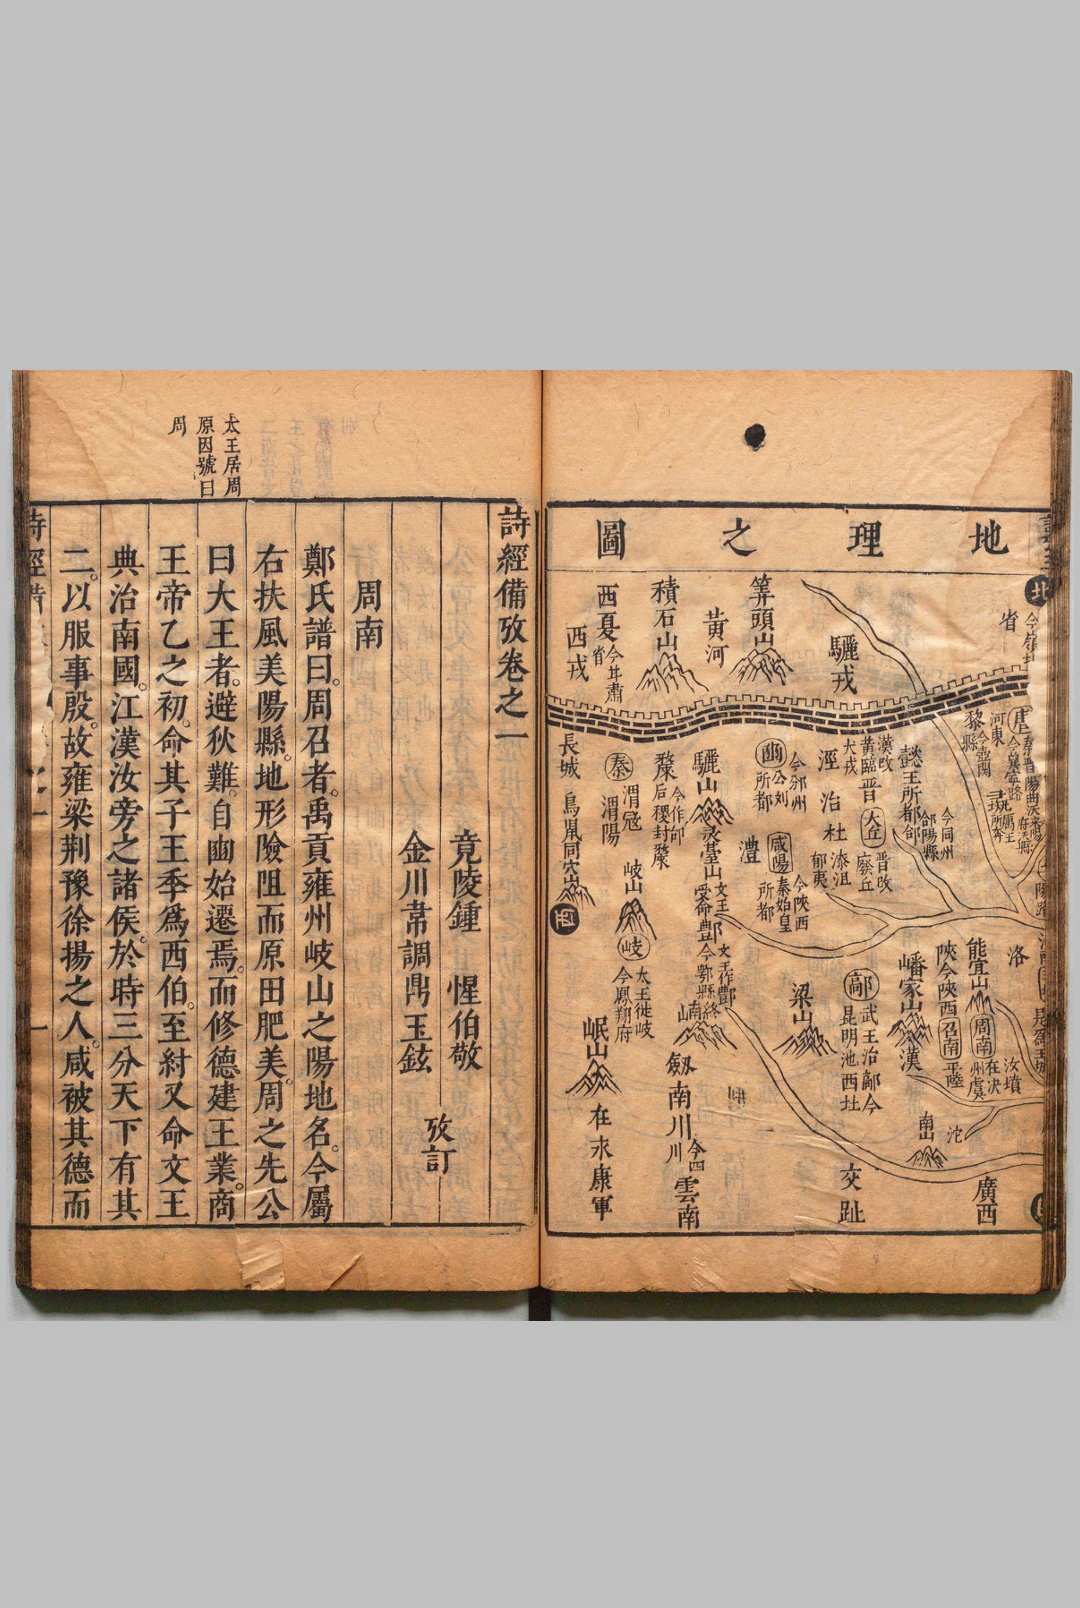 地理之圖
北
省
驪戎
筓頭山
黃河
積石山
西夏
今甘肅
省
西戎
長城
鳥鼠同穴山
西
秦
渭冦
渭陽
岐山
岐
太王徙岐
今鳳翔府
岷山
在永康軍
漦后稷封漦
今作邰
驪山
文王
靈臺山
愛命豐
今鄠縣終
文王作酆
南山
劔南川
今四
川
雲南
豳
公刘
所都
今邠州
咸陽
秦始皇
所都
今陝西
灃
梁山
涇
治
杜
漆沮
郁夷
犬戎
漢攺
黃臨晉
犬丘
晉攺
廢丘
懿王所都
郃
郃陽縣
今同州
鄗
武王治鄗今
昆明池西址
交趾
嶓冢山
漢
陝今陝西
召南
平陸
熊宜山
周南
在汝
州虞
汝墳
洛
南山
沱
廣西
黎
今壺關
縣
河東
詩經備攷卷之一
竟陵鍾　惺伯敬
金川韋調鼎玉鉉
攷訂
周南
鄭氏譜曰。周召者。禹貢雍州岐山之陽地名。今屬
右扶風美陽縣。地形險阻而原田肥美。周之先公
曰大王者。避狄難。自豳始遷焉。而修德建王業。商
王帝乙之初。命其子王季爲西伯。至紂又命文王
典治南國。江漢汝旁之諸侯。於時三分天下有其
二。以服事殷。故雍梁荆豫徐揚之人。咸被其德而
太王居周
原因號曰
周
詩經備